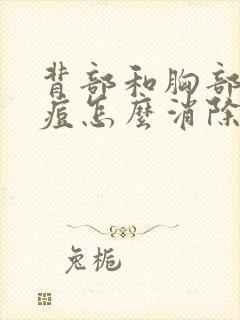 背部和胸部
痘怎麼消除
兔栀